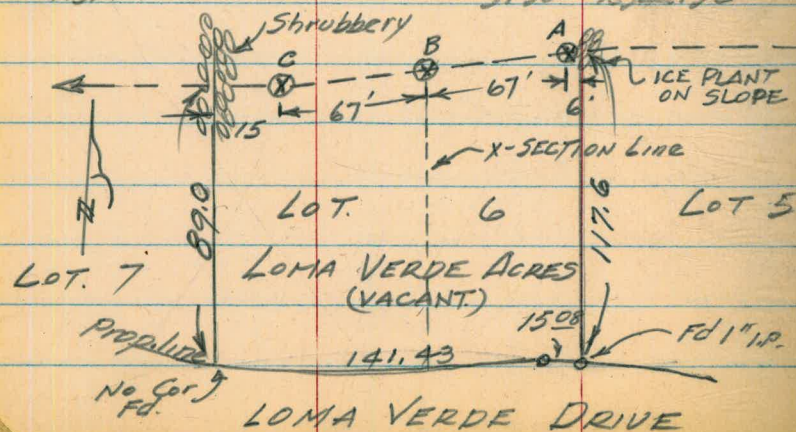 Shrubbery
C
B
A
ICE PLANT
ON SLOPE
67'
67'
6'
15
X-SECTION Line
N
89.0
LOT. 6
117.6
LOT 5
LOT. 7
LOMA VERDE ACRES
(VACANT.)
15.08
Fd 1" I.P.
Prop. line
141.43
No Cor.
Fd.
LOMA VERDE DRIVE